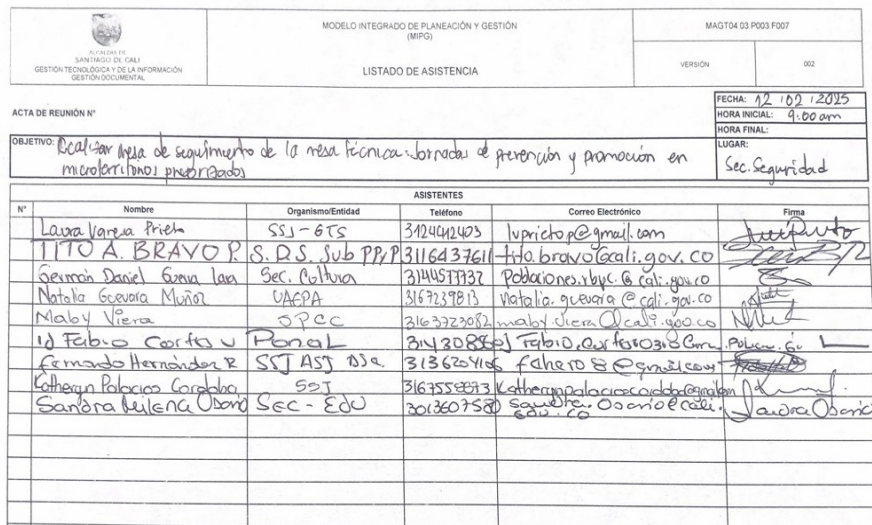 ALCALDÍA DE
SANTIAGO DE CALI
GESTIÓN TECNOLÓGICA Y DE LA INFORMACIÓN
GESTIÓN DOCUMENTAL
MODELO INTEGRADO DE PLANEACIÓN Y GESTIÓN
(MIPG)
LISTADO DE ASISTENCIA
MAGT04.03.P003.F007
VERSIÓN 002
ACTA DE REUNIÓN N°
FECHA: 12 / 02 / 2025
HORA INICIAL: 9:00 am
HORA FINAL:
OBJETIVO: Realizar mesa de seguimiento de la mesa técnica: Jornadas de prevención y promoción en
microterritorios priorizados
LUGAR:
Sec. Seguridad
ASISTENTES
N° Nombre Organismo/Entidad Teléfono Correo Electrónico Firma
Laura Prieto SSJ - GTS 3124412403 lvprietop@gmail.com
TITO A. BRAVO P. S.D.S. Sub PPyP 3116437611 tito.bravo@cali.gov.co
Germán Daniel Lara Sec. Cultura 3144577732 Poblaciones.rbyc.@cali.gov.co
Natalia Guevara Muñoz UAEPA 3167239813 natalia.guevara@cali.gov.co
Maby Viera 3163723082 maby.viera@cali.gov.co
Fabio Ponal
Fernando Hernández R SSJ ASJ 3136204106 fahero8@gmail.com
Katheryn Palacios Cordoba SSJ
Sandra Milena Osorio SEC - EDU 3013607580 Sandra.Osorio@cali.
edu.co Sandra Osorio